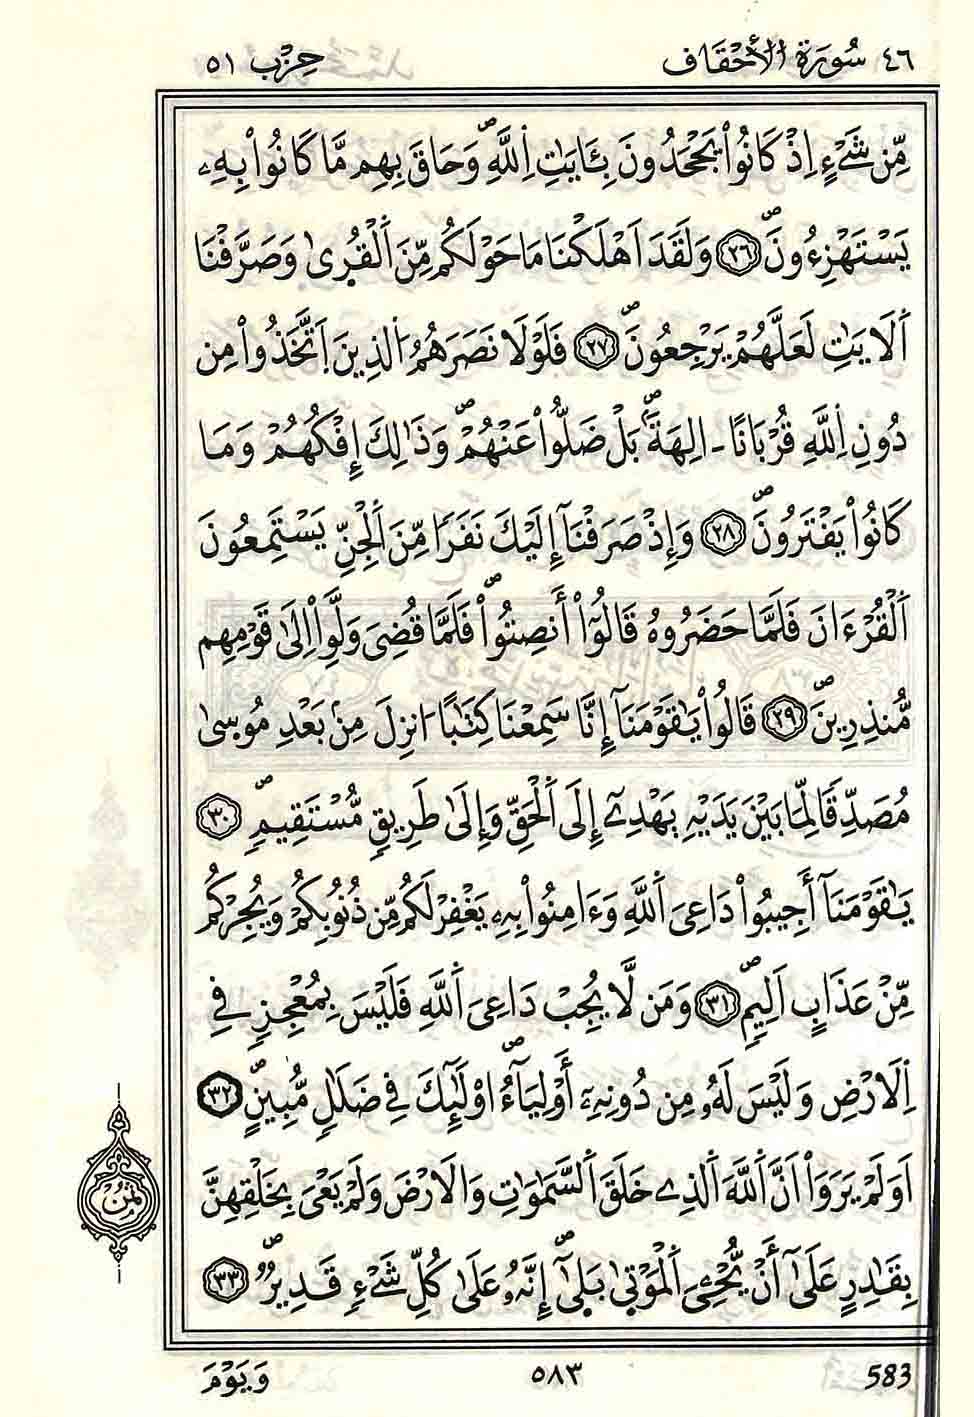 ٤٦ سُورَةُ الأَحْقَافِ حِزْب ٥١
مِّن شَےْءٍ اِذْ كَانُواْ يَجْحَدُونَ بِـَٔايَٰتِ اِ۬للَّهِۖ وَحَاقَ بِهِم مَّا كَانُواْ بِهِۦ
يَسْتَهْزِءُونَۖ ٢٦ وَلَقَدَ اَهْلَكْنَا مَا حَوْلَكُم مِّنَ اَ۬لْقُر۪ىٰ وَصَرَّفْنَا
اَ۬لَايَٰتِ لَعَلَّهُمْ يَرْجِعُونَۖ ٢٧ فَلَوْلَا نَصَرَهُمُ اُ۬لذِينَ اَ۪تَّخَذُواْ مِن
دُونِ اِ۬للَّهِ قُرْبَاناً ـ اٰلِهَةَۢۖ بَلْ ضَلُّواْ عَنْهُمْۖ وَذَٰلِكَ إِفْكُهُمْ وَمَا
كَانُواْ يَفْتَرُونَۖ ٢٨ وَإِذْ صَرَفْنَآ إِلَيْكَ نَفَراٗ مِّنَ اَ۬لْجِنِّ يَسْتَمِعُونَ
اَ۬لْقُرْءَانَ فَلَمَّا حَضَرُوهُ قَالُوٓاْ أَنصِتُواْۖ فَلَمَّا قُضِيَ وَلَّوِاْ اِلَىٰ قَوْمِهِم
مُّنذِرِينَۖ ٢٩ قَالُواْ يَٰقَوْمَنَآ إِنَّا سَمِعْنَا كِتَٰباً اُنزِلَ مِنۢ بَعْدِ مُوس۪ىٰ
مُصَدِّقاٗ لِّمَا بَيْنَ يَدَيْهِ يَهْدِےٓ إِلَى اَ۬لْحَقِّ وَإِلَىٰ طَرِيقٖ مُّسْتَقِيمٖۖ ٣٠
يَٰقَوْمَنَآ أَجِيبُواْ دَاعِيَ اَ۬للَّهِ وَءَامِنُواْ بِهِۦ يَغْفِرْ لَكُم مِّن ذُنُوبِكُمْ وَيُجِرْكُم
مِّنْ عَذَابٍ اَلِيمٖۖ ٣١ وَمَن لَّا يُجِبْ دَاعِيَ اَ۬للَّهِ فَلَيْسَ بِمُعْجِزٖ فِے
اِ۬لَارْضِ وَلَيْسَ لَهُۥ مِن دُونِهِۦٓ أَوْلِيَآءُۖ اوْلَٰٓئِكَ فِے ضَلَٰلٖ مُّبِينٍۖ ٣٢
اَوَلَمْ يَرَوَاْ اَنَّ اَ۬للَّهَ اَ۬لذِے خَلَقَ اَ۬لسَّمَٰوَٰتِ وَالَارْضَ وَلَمْ يَعْيَ بِخَلْقِهِنَّ
بِقَٰدِرٍ عَلَىٰٓ أَنْ يُّحْـِۧيَ اَ۬لْمَوْت۪ىٰ بَل۪ىٰٓۖ إِنَّهُۥ عَلَىٰ كُلِّ شَےْءٖ قَدِيرٞۖ ٣٣
ثمن
وَيَوْمَ ٥٨٣ 583